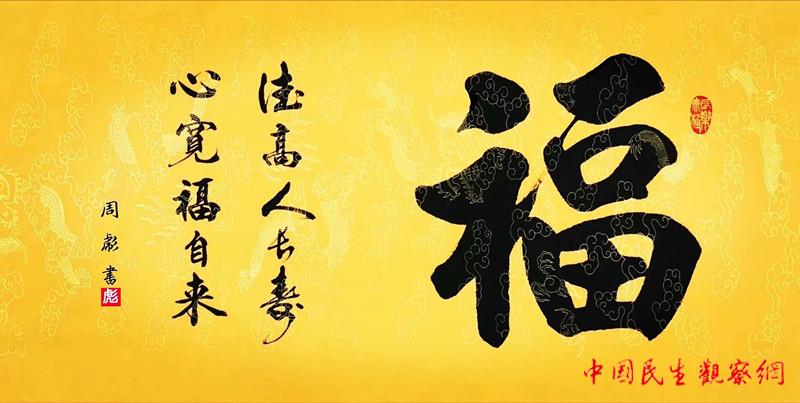 福
德高人长寿
心宽福自来
周彪书
彪
中國民生觀察網